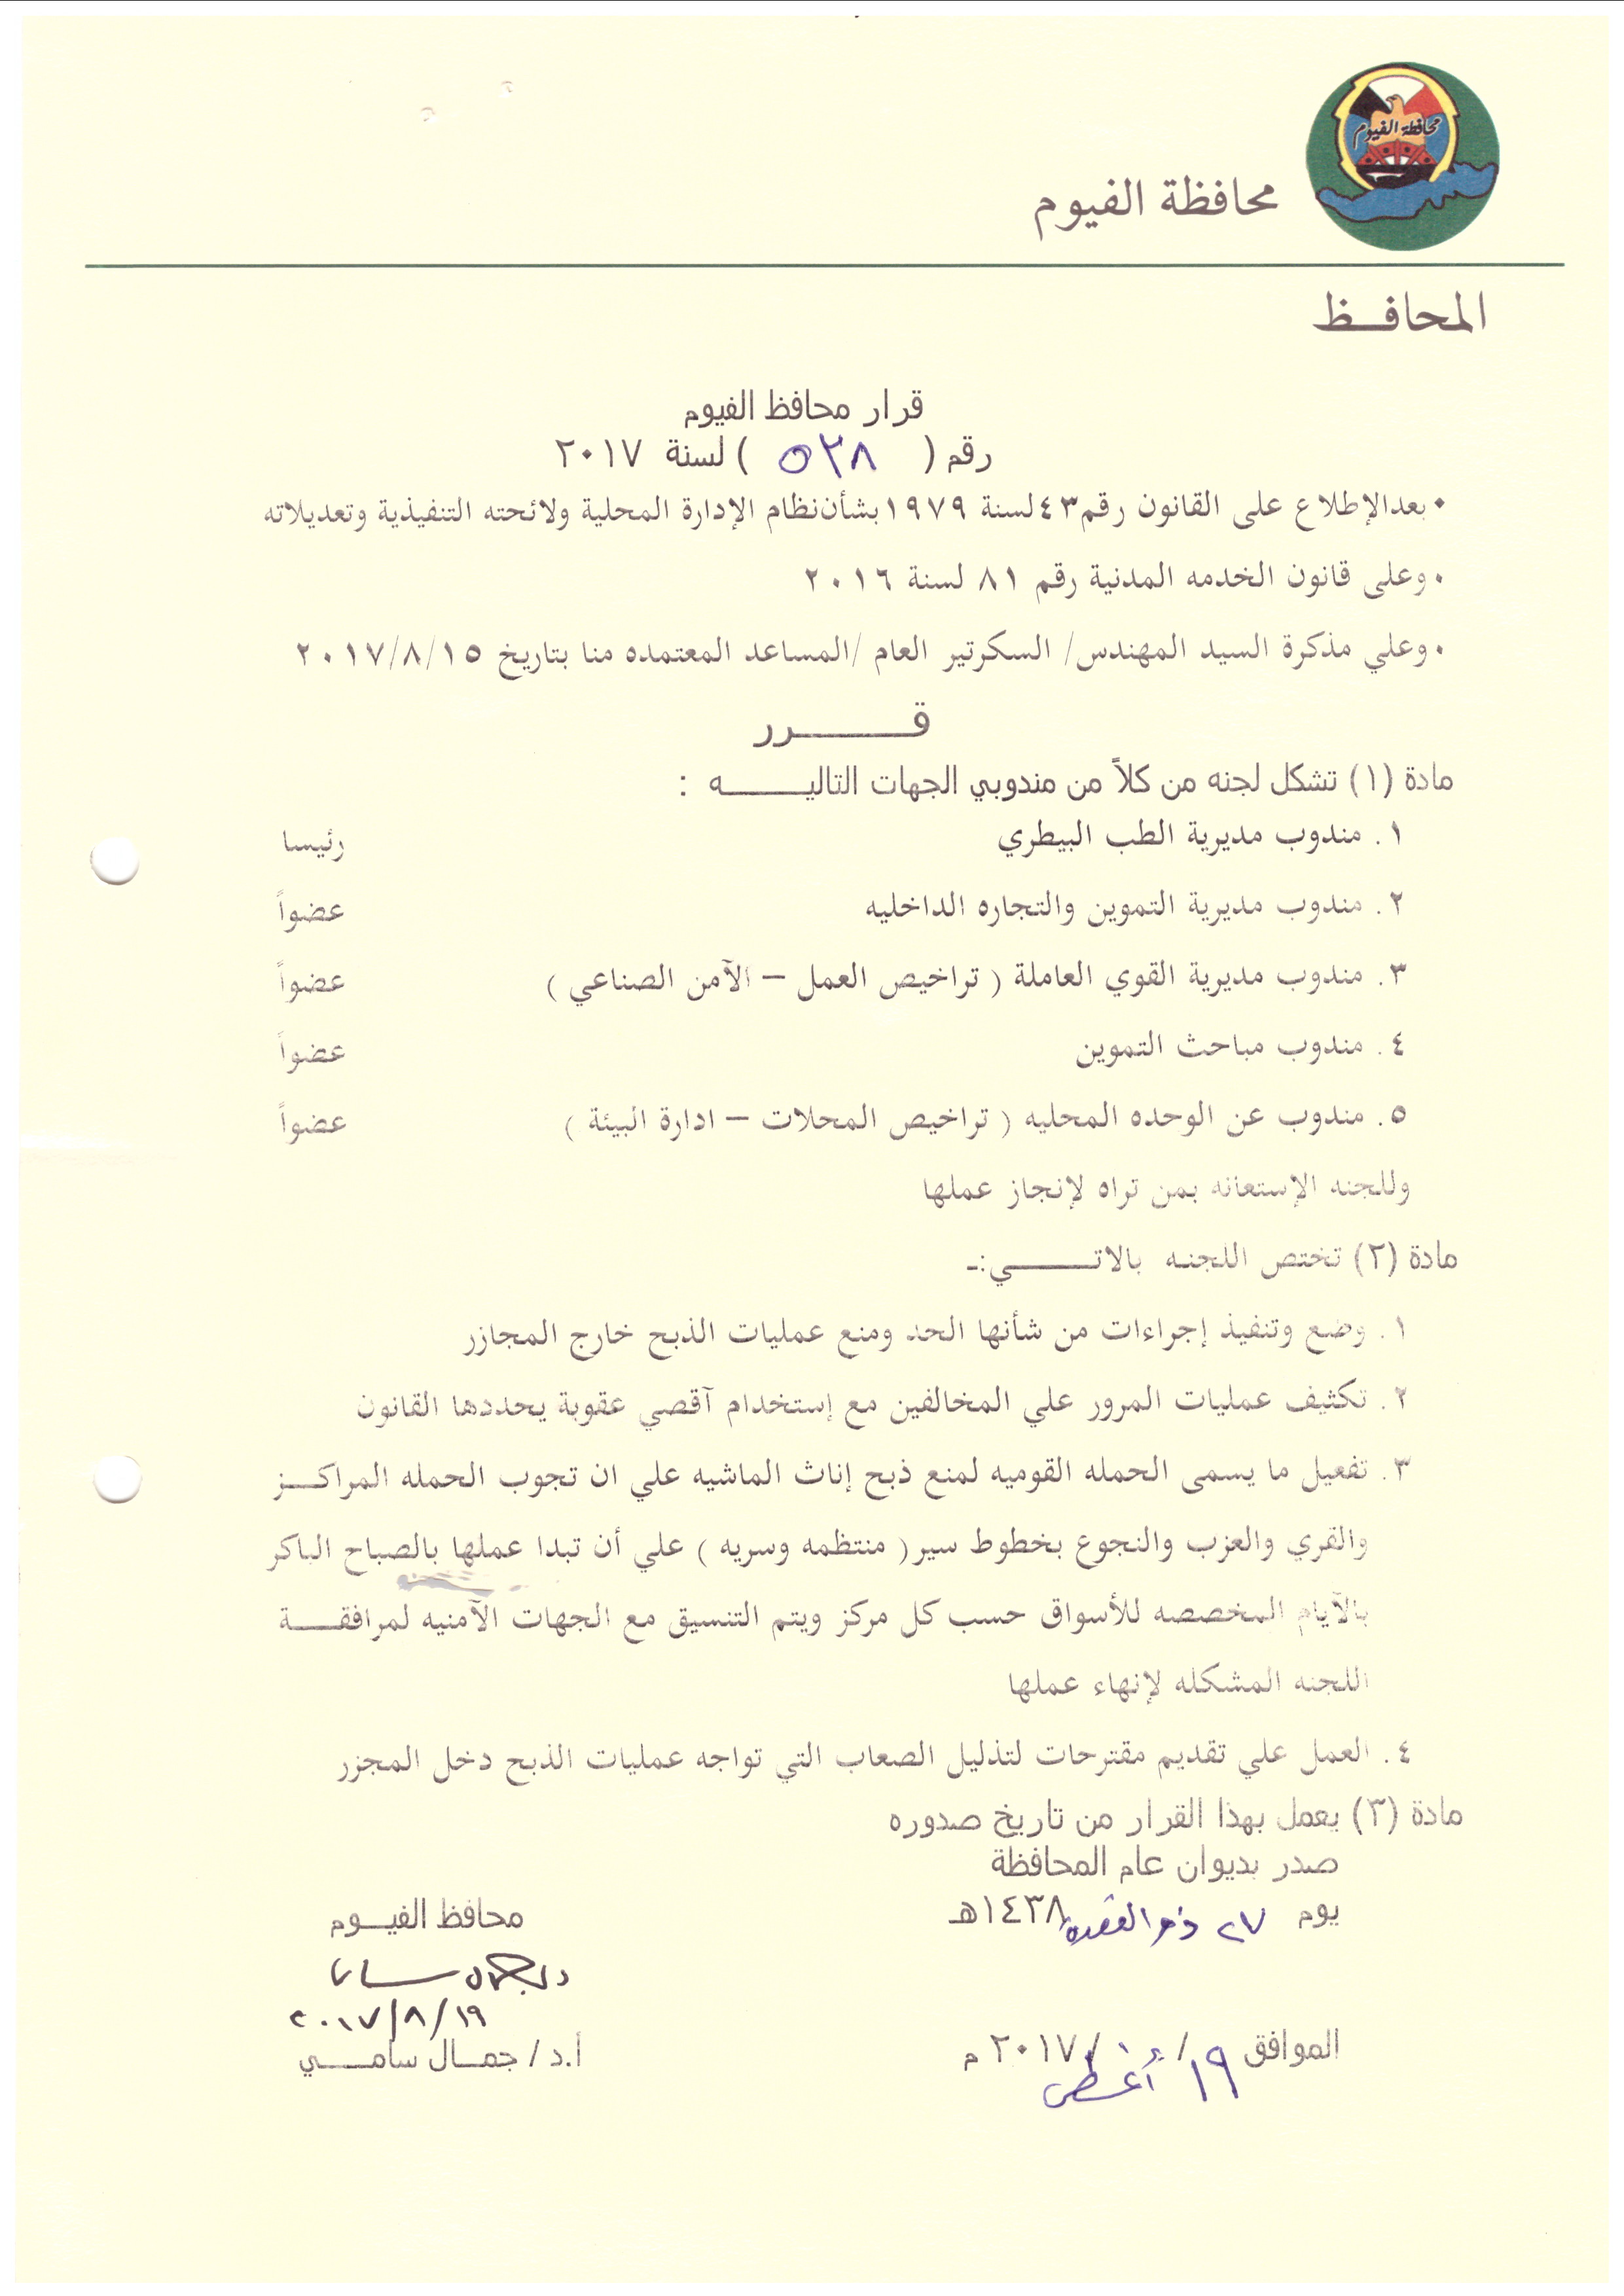 محافظة الفيوم
محافظة الفيوم
المحافــظ
قرار محافظ الفيوم
رقم ( ٥٢٨ ) لسنة ٢٠١٧
• بعدالإطلاع على القانون رقم٤٣لسنة ١٩٧٩بشأن‌نظام الإدارة المحلية ولائحته التنفيذية وتعديلاته
• وعلى قانون الخدمه المدنية رقم ٨١ لسنة ٢٠١٦
• وعلي مذكرة السيد المهندس/ السكرتير العام /المساعد المعتمده منا بتاريخ ٢٠١٧/٨/١٥
قـــــــرر
مادة (١) تشكل لجنه من كلاً من مندوبي الجهات التاليـــــــه :
١. مندوب مديرية الطب البيطري رئيسا
٢. مندوب مديرية التموين والتجاره الداخليه عضواً
٣. مندوب مديرية القوي العاملة ( تراخيص العمل – الآمن الصناعي ) عضواً
٤. مندوب مباحث التموين عضواً
٥. مندوب عن الوحده المحليه ( تراخيص المحلات – ادارة البيئة ) عضواً
وللجنه الإستعانه بمن تراه لإنجاز عملها
مادة (٢) تختص اللجنه بالاتـــــــي:ـ
١. وضع وتنفيذ إجراءات من شأنها الحد ومنع عمليات الذبح خارج المجازر
٢. تكثيف عمليات المرور علي المخالفين مع إستخدام آقصي عقوبة يحددها القانون
٣. تفعيل ما يسمى الحمله القوميه لمنع ذبح إناث الماشيه علي ان تجوب الحمله المراكـــز
والقري والعزب والنجوع بخطوط سير( منتظمه وسريه ) علي أن تبدا عملها بالصباح الباكر
بالآيام المخصصه للأسواق حسب كل مركز ويتم التنسيق مع الجهات الآمنيه لمرافقـــــة
اللجنه المشكله لإنهاء عملها
٤. العمل علي تقديم مقترحات لتذليل الصعاب التي تواجه عمليات الذبح دخل المجزر
مادة (٣) يعمل بهذا القرار من تاريخ صدوره
صدر بديوان عام المحافظة
يوم ٢٧ ذو القعدة ١٤٣٨هـ
محافظ الفيـــوم
٢٠١٧/٨/١٩
الموافق ١٩/ أغسطس /٢٠١٧ م
أ.د/ جمـــال سامـــــي